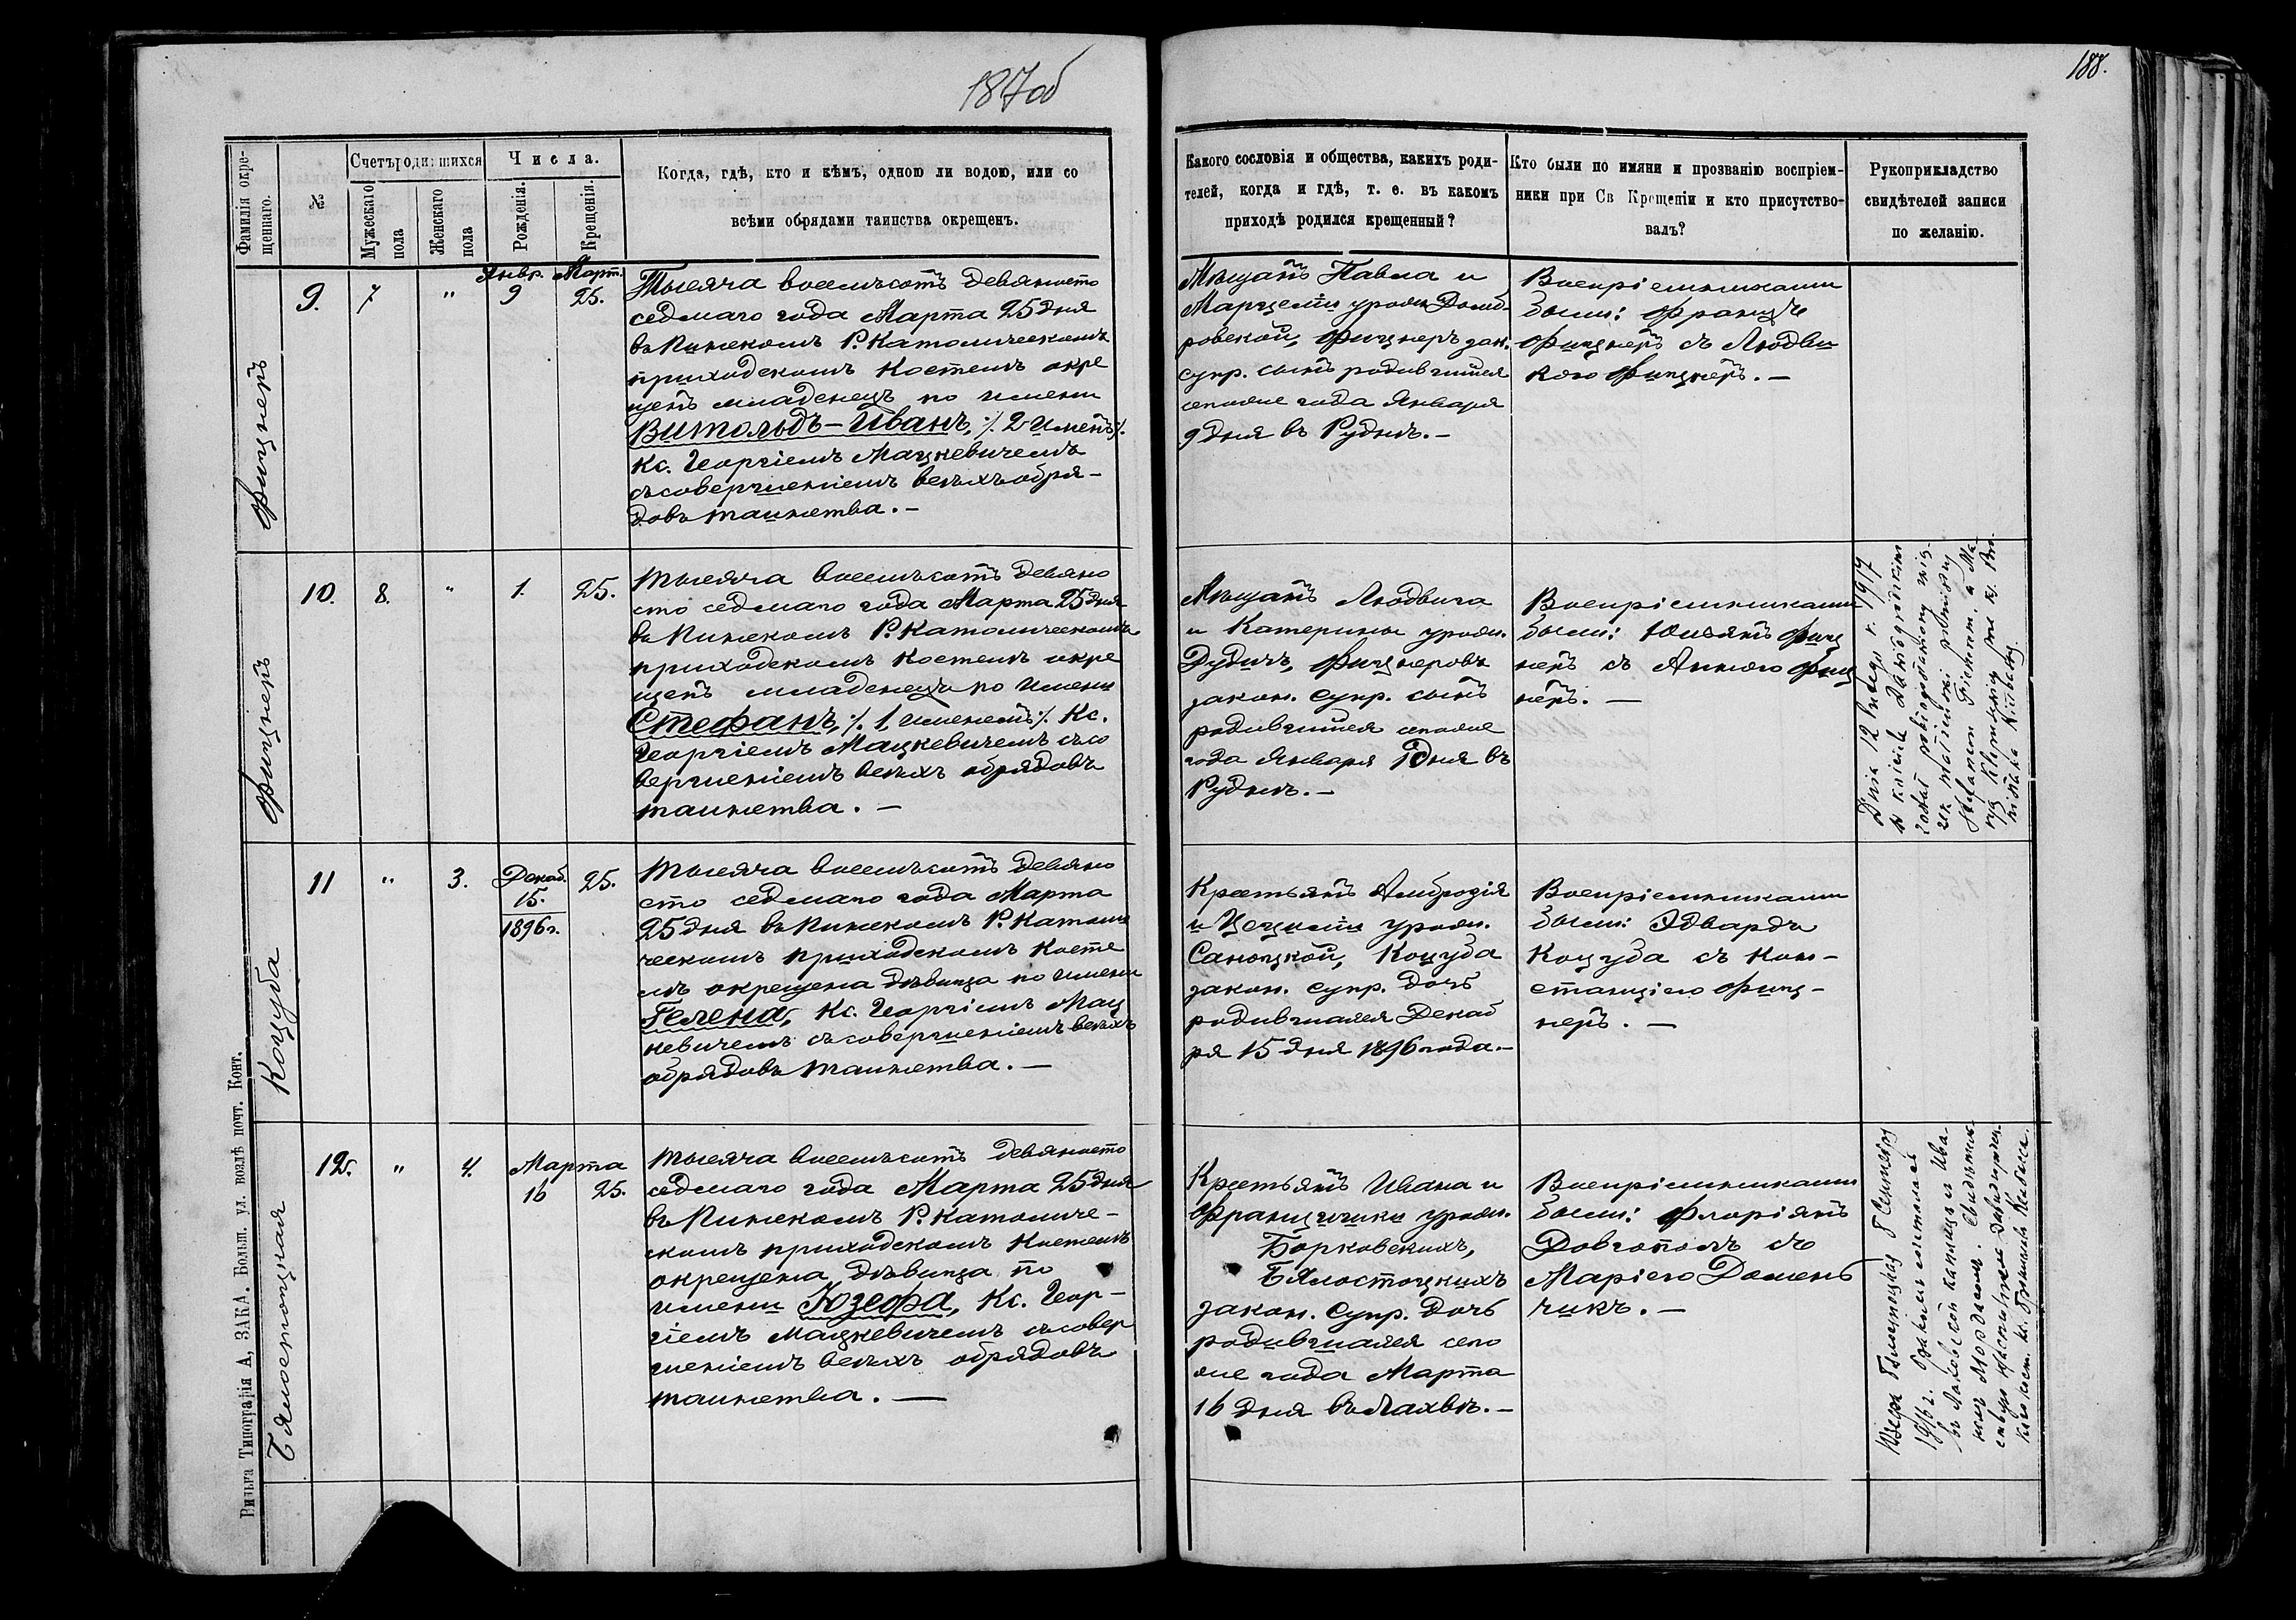 187об
188.
Фамилія окре-
щеннаго.
№
Счетъ родившихся
Мужескаго
пола
Женскаго
пола
Числа.
Рожденія.
Крещенія.
Когда, гдѣ, кто и кѣмъ, одною ли водою, или со
всѣми обрядами таинства окрещенъ.
Какого сословія и общества, какихъ роди-
телей, когда и гдѣ, т. е. въ какомъ
приходѣ родился крещенный?
Кто были по имяни и прозванію воспріем-
ники при Св Крещеніи и кто присутство-
валъ?
Рукоприкладство
свидѣтелей записи
по желанію.
Фицнеръ
9.
7
"
Январ.
9
Март.
25.
Тысяча восемьсотъ девяносто
седмаго года Марта 25 дня
въ Пинскомъ Р. Католическомъ
приходскомъ Костелѣ окре
щенъ младенецъ по имени
Витольдъ-Иванъ, ./. 2 именъ ./.
Кс. Георгіемъ Мацкевичемъ
съ совершеніемъ всѣхъ обря-
довъ таинства. —
Мѣщанъ Павла и
Марцеліи урожд. Домб-
ровской, Фицнеръ зак.
супр. сынъ родившійся
сего же года Января
9 дня въ Руднѣ. —
Воспріемниками
были: Францъ
Фицнеръ съ Людви
кою Фицнеръ. —
Фицнеръ
10.
8.
"
1.
25.
Тысяча восемьсотъ девяно
сто седмаго года Марта 25 дня
въ Пинскомъ Р. Католическомъ
приходскомъ Костелѣ окре
щенъ младенецъ по имени
Стефанъ, ./. 1 именемъ ./. Кс.
Георгіемъ Мацкевичемъ съ со
вершеніемъ всѣхъ обрядовъ
таинства. —
Мѣщанъ Людвига
и Катерины урожд.
Дудичъ, Фицнеровъ
закон. супр. сынъ
родившійся сего же
года Января 1 дня въ
Руднѣ. —
Воспріемниками
были: Юліанъ Фиц
неръ съ Анною Фиц
неръ. —
Dnia 12 lutego r. 1917
w kościele Dawidgródzkim
został pobłogosławiony zwią-
zek małżeński pomiędzy
Stefanem Ficnerem a Ma-
ryą
Коцуба
11
"
3.
Декаб.
15.
1896 г.
25.
Тысяча восемьсотъ девяно
сто седмаго года Марта
25 дня въ Пинскомъ Р. Католи
ческомъ приходскомъ Косте
лѣ окрещена дѣвица по имени
Гелена, Кс. Георгіемъ Мац
кевичемъ съ совершеніемъ всѣхъ
обрядовъ таинства. —
Крестьянъ Амброзія
и Цециліи урожд.
Саноцкой, Коцуба
закон. супр. дочь
родившаяся Декаб
ря 15 дня 1896 года. —
Воспріемниками
были: Эдвардъ
Коцуба съ Кон-
станціею Фиц-
неръ. —
Бялостоцкая
12.
"
4.
Марта
16
25.
Тысяча восемьсотъ девяносто
седмаго года Марта 25 дня
въ Пинскомъ Р. Католиче-
скомъ приходскомъ Костелѣ
окрещена дѣвица по
имени Юзефа, Кс. Геор-
гіемъ Мацкевичемъ съ совер
шеніемъ всѣхъ обрядовъ
таинства. —
Крестьянъ Ивана и
Францишки урожд.
Борковскихъ,
Бялостоцкихъ
закон. супр. дочь
родившаяся сего
же года Марта
16 дня въ Лахвѣ. —
Воспріемниками
были: Флоріянъ
Довгополъ съ
Маріею Домень
чикъ. —
1916 г.
Вильна Типографія А, ЗАКА. Больш. ул. возлѣ почт. Конт.